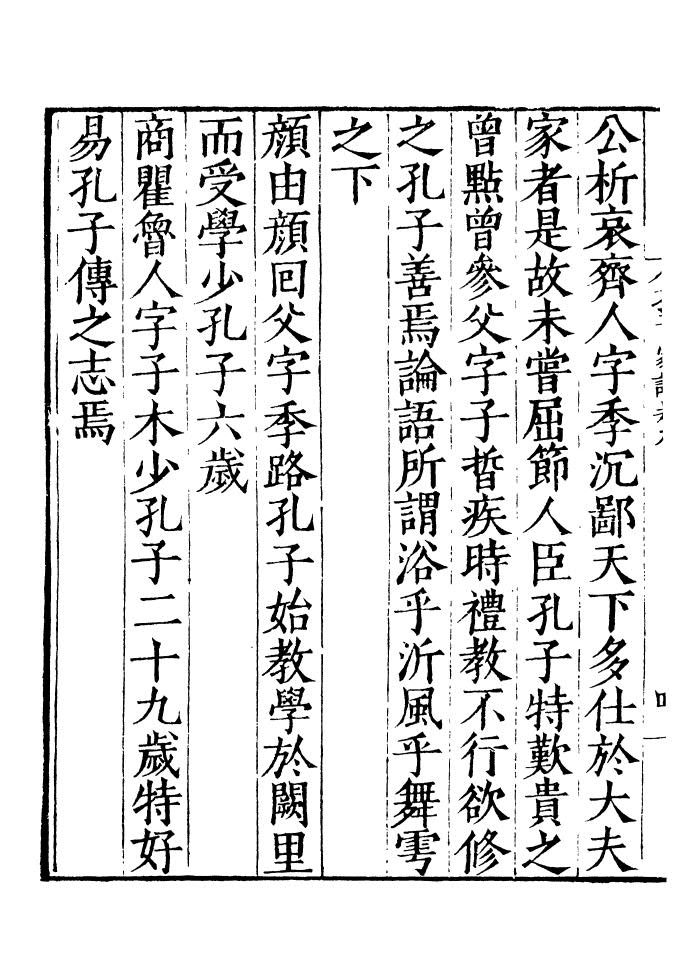 公析哀齊人字季沉鄙天下多仕於大夫
家者是故未嘗屈節人臣孔子特歎貴之
曾點曾參父字子晳疾時禮教不行欲修
之孔子善焉論語所謂浴乎沂風乎舞雩
之下
顔由顔回父字季路孔子始教學於闕里
而受學少孔子六歲
商瞿魯人字子木少孔子二十九歲特好
易孔子傳之志焉